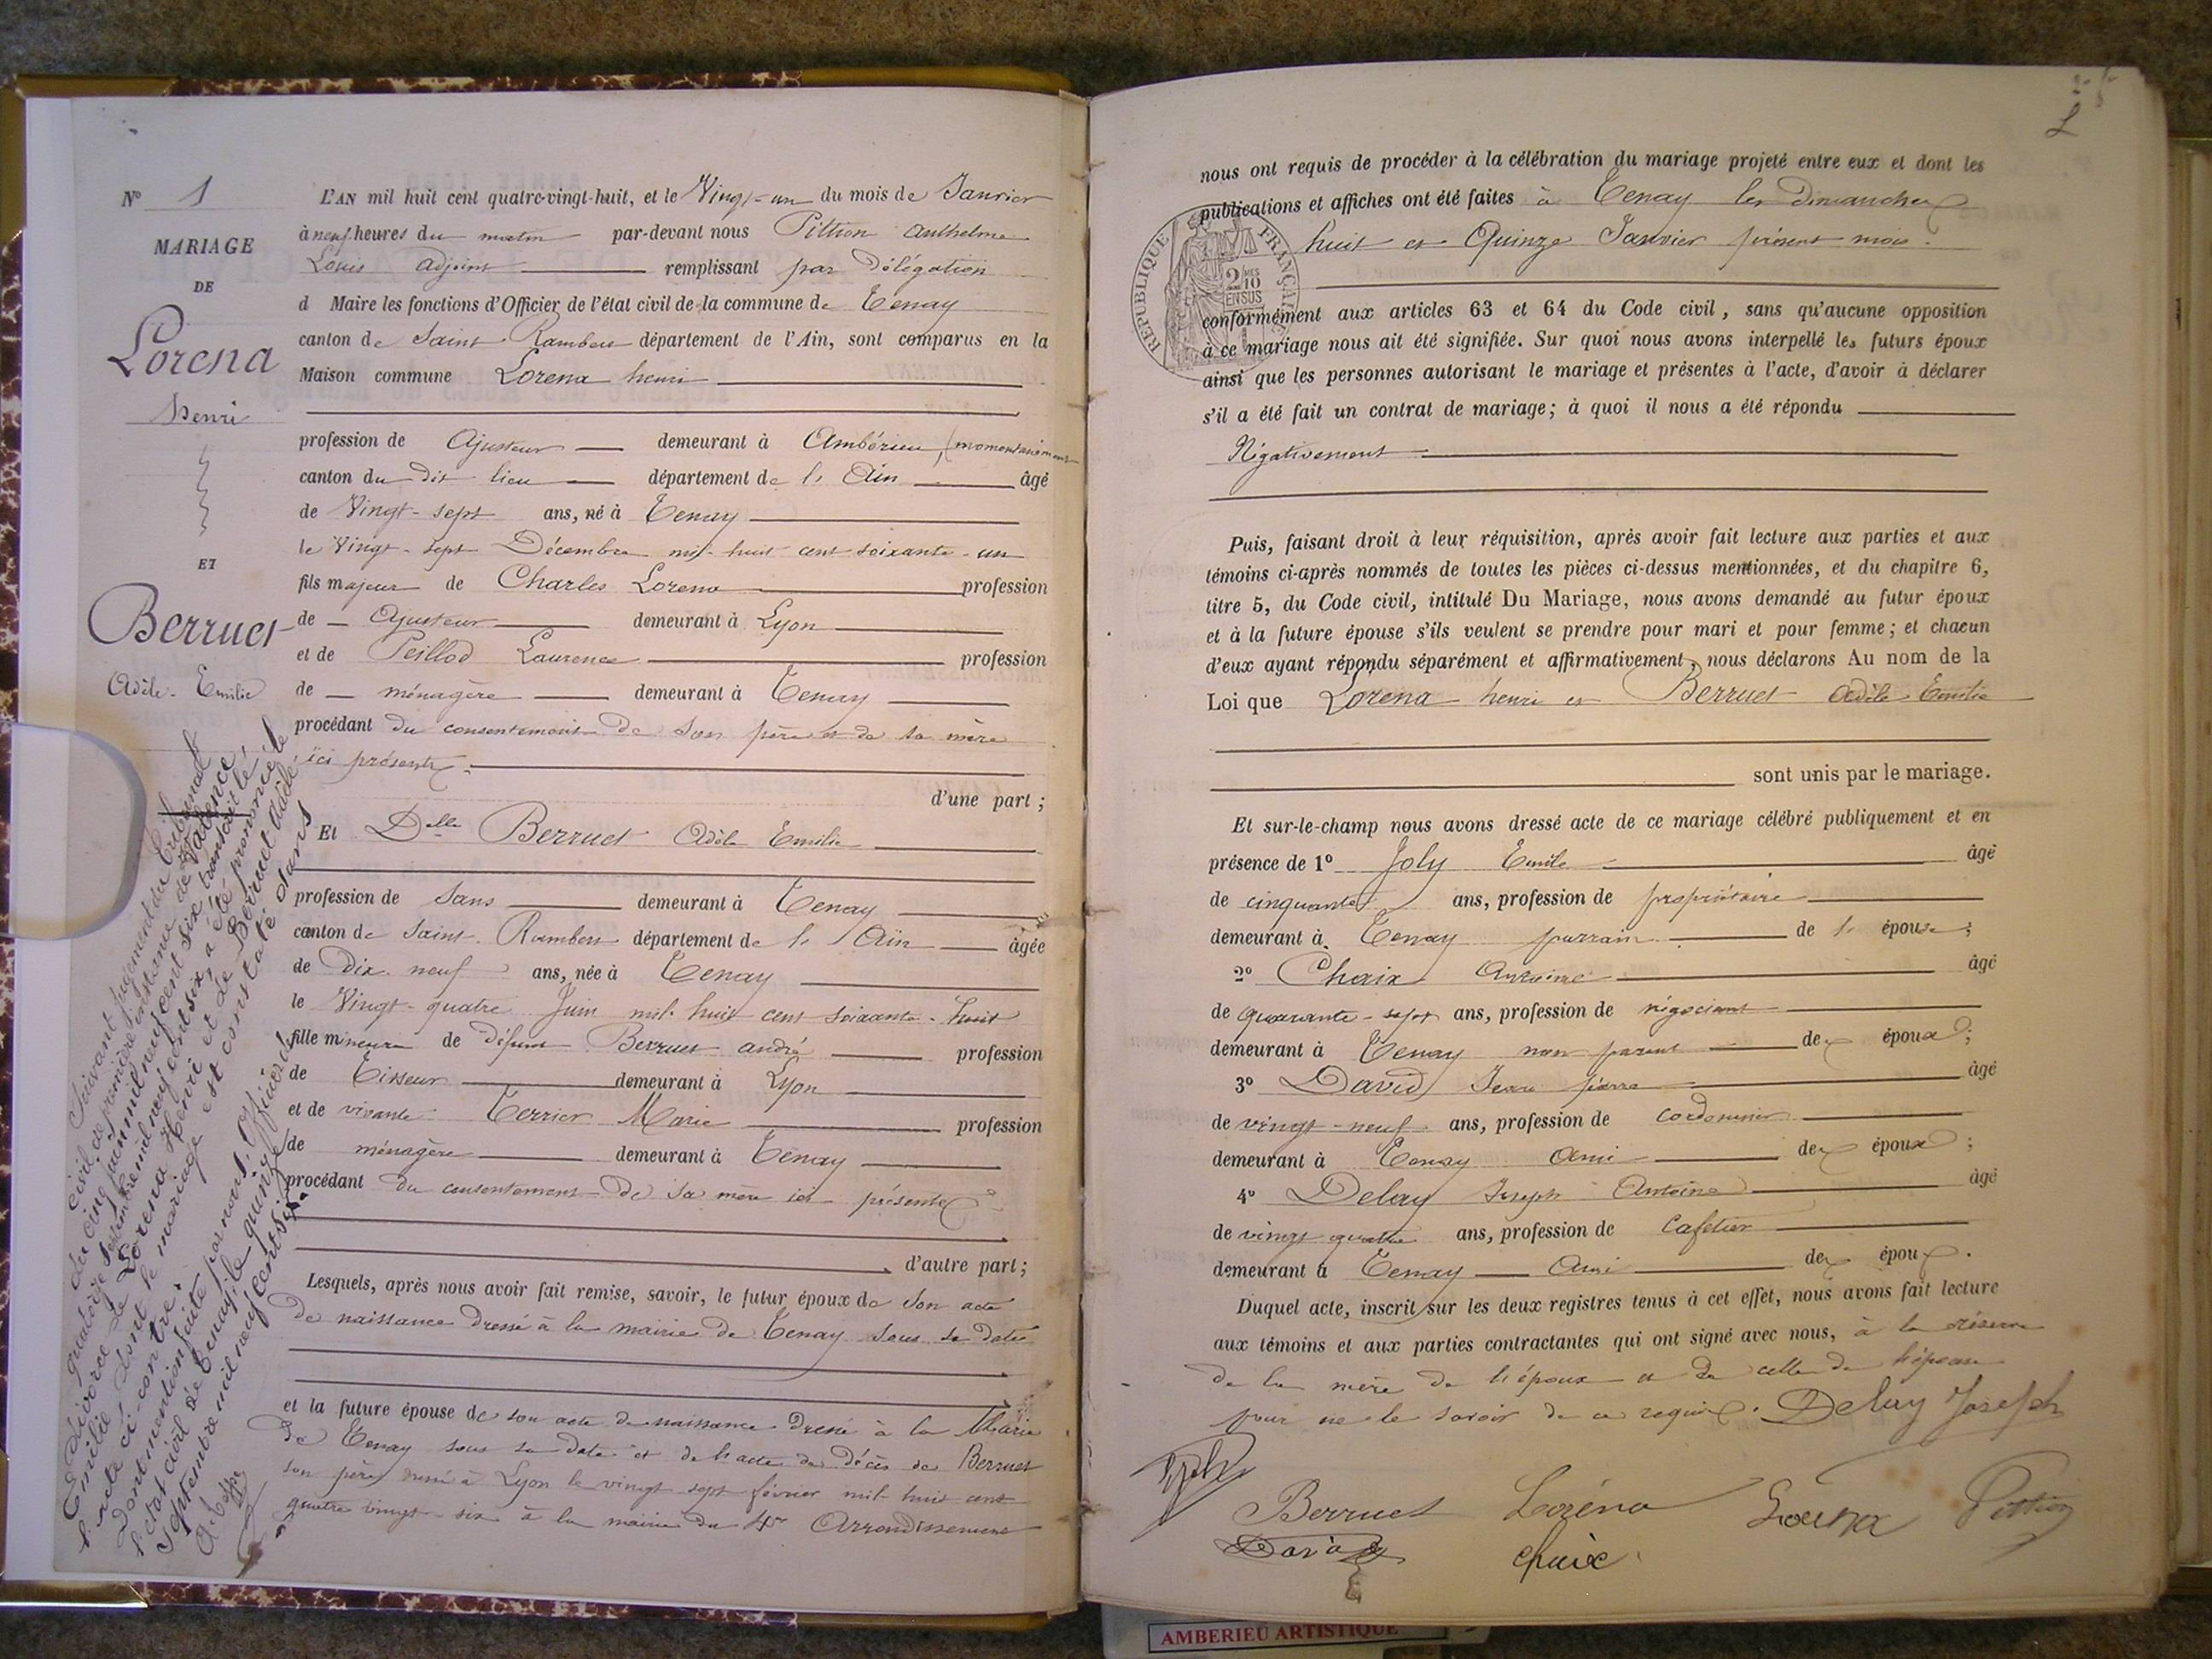 Nº 1
MARIAGE
DE
Lorena
Henri
ET
Berruet
Adèle Emilie
L'AN mil huit cent quatre-vingt-huit, et le Vingt-un du mois de Janvier
à neuf heures du matin par-devant nous Pittion Anthelme
Louis adjoint remplissant par Délégation
d Maire les fonctions d'Officier de l'état civil de la commune de Tenay
canton de Saint Rambert département de l'Ain, sont comparus en la
Maison commune Lorena henri
profession de Ajusteur demeurant à Ambérieu, (momentanément
canton du dit lieu département de l' Ain âgé
de Vingt-sept ans, né à Tenay
le Vingt-sept Décembre mil huit cent soixante-un
fils majeur de Charles Lorena profession
de Ajusteur demeurant à Lyon
et de Peillod Laurence profession
de ménagère demeurant à Tenay
procédant du consentement de son père et de sa mère
ici présents.
d'une part ;
Et Delle Berruet Adèle Emilie
profession de Sans demeurant à Tenay
canton de Saint Rambert département de l' Ain âgée
de Dix neuf ans, née à Tenay
le Vingt-quatre Juin mil huit cent soixante-huit
fille mineure de Défunt Berruet andré profession
de Tisseur demeurant à Lyon
et de vivante Terrier Marie profession
de ménagère demeurant à Tenay
procédant du consentement de sa mère ici présente
d'autre part ;
Lesquels, après nous avoir fait remise, savoir, le futur époux de Son acte
de naissance dressé à la mairie de Tenay sous sa date
et la future épouse de son acte de naissance dressé à la Mairie
de Tenay sous sa date et de l'acte de décès de Berruet
son père dressé à Lyon le vingt sept février mil huit cent
quatre vingt-six à la mairie du 4me Arrondissement
Suivant jugement du Tribunal
civil de première instance de Valence,
du cinq juin mil neuf cent six transcrit le
quatorze septembre mil neuf cent six a été prononcé le
divorce de Lorena Henri et de Berruet Adèle
Emilie dont le mariage est constaté dans
l'acte ci-contre.
Dont mention faite par nous, officier de
l'état civil de Tenay, le quinze
septembre mil neuf cent six.
nous ont requis de procéder à la célébration du mariage projeté entre eux et dont les
publications et affiches ont été faites à Tenay les dimanches
huit et Quinze Janvier présent mois.
REPUBLIQUE FRANÇAISE
2/10 EN SUS
conformément aux articles 63 et 64 du Code civil, sans qu'aucune opposition
à ce mariage nous ait été signifiée. Sur quoi nous avons interpellé les futurs époux
ainsi que les personnes autorisant le mariage et présentes à l'acte, d'avoir à déclarer
s'il a été fait un contrat de mariage ; à quoi il nous a été répondu
Négativement
Puis, faisant droit à leur réquisition, après avoir fait lecture aux parties et aux
témoins ci-après nommés de toutes les pièces ci-dessus mentionnées, et du chapitre 6,
titre 5, du Code civil, intitulé Du Mariage, nous avons demandé au futur époux
et à la future épouse s'ils veulent se prendre pour mari et pour femme ; et chacun
d'eux ayant répondu séparément et affirmativement, nous déclarons Au nom de la
Loi que Lorena henri et Berruet Adèle Emilie
sont unis par le mariage.
Et sur-le-champ nous avons dressé acte de ce mariage célébré publiquement et en
présence de 1º Joly Emile âgé
de cinquante ans, profession de propriétaire
demeurant à Tenay parrain de l' épouse ;
2º Chaix Antoine âgé
de quarante-sept ans, profession de négociant
demeurant à Tenay non parent des époux ;
3º David Jean pierre âgé
de vingt-neuf ans, profession de cordonnier
demeurant à Tenay Ami des époux ;
4º Delay Joseph Antoine âgé
de vingt quatre ans, profession de Cafetier
demeurant à Tenay Ami des époux.
Duquel acte, inscrit sur les deux registres tenus à cet effet, nous avons fait lecture
aux témoins et aux parties contractantes qui ont signé avec nous, à la réserve
de la mère de l'époux et de celle de l'épouse
pour ne le savoir de ce requis. Delay Joseph
Berruet Loréna Lorena Pittion
David Chaix
AMBERIEU ARTISTIQUE